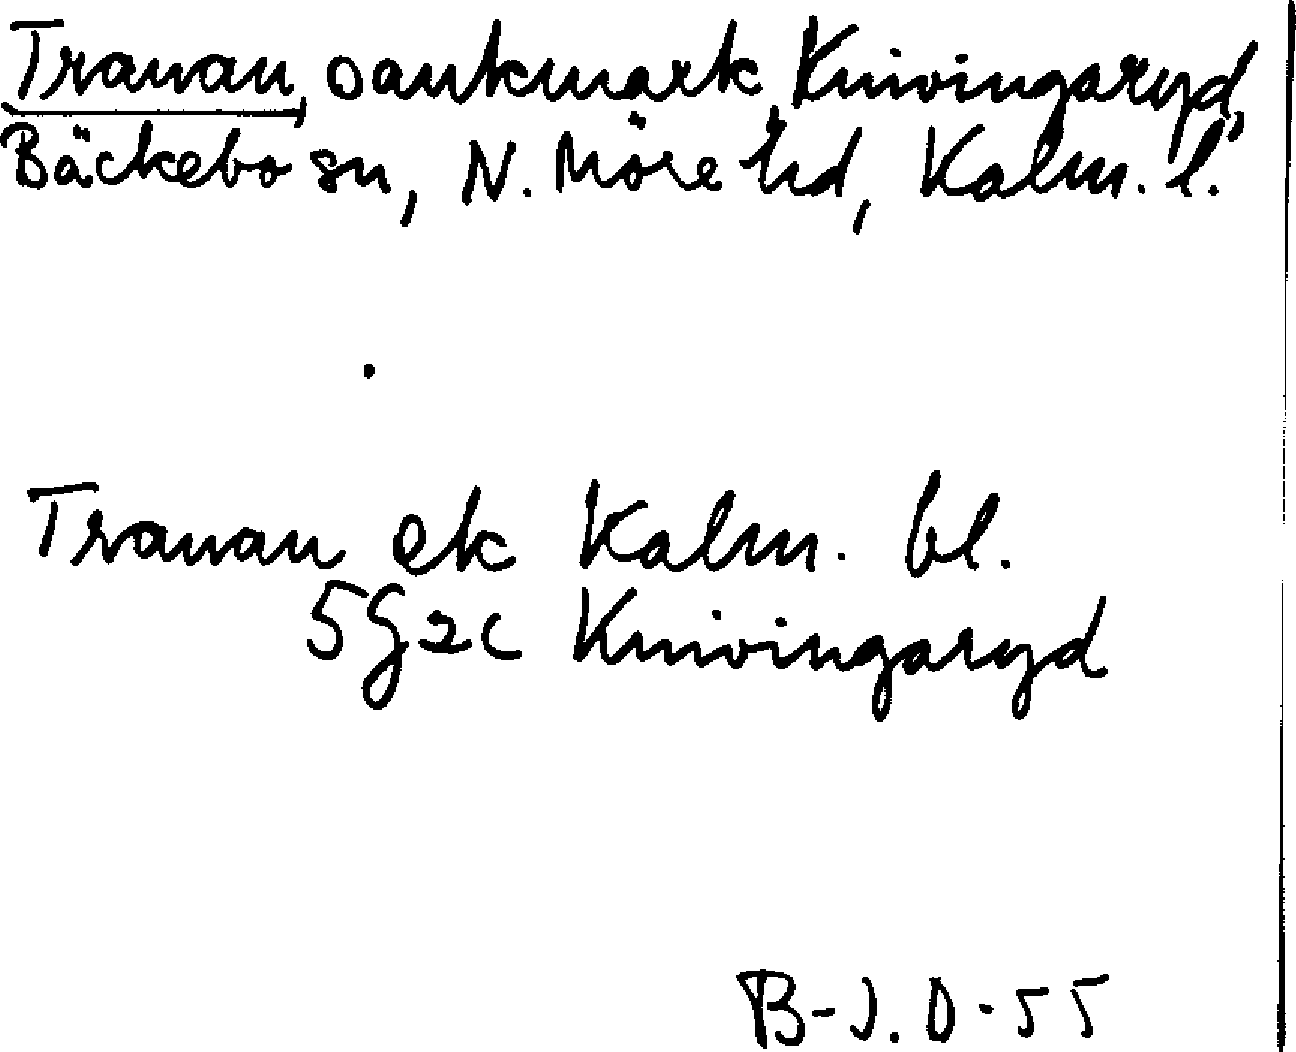 Tranan, sankmark, Knivingaryd,
Bäckebo sn, N. Möre hd, Kalm. l.
Tranan ek Kalm. bl.
5G2c Knivingaryd
B-J.O-55